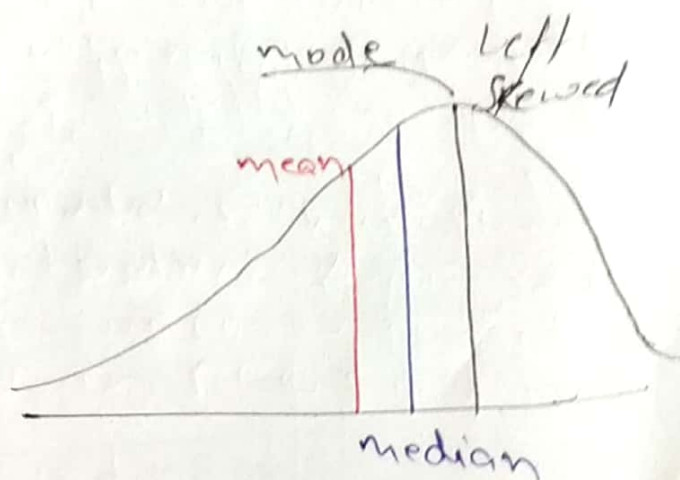 mode
Left
Skewed
mean
median